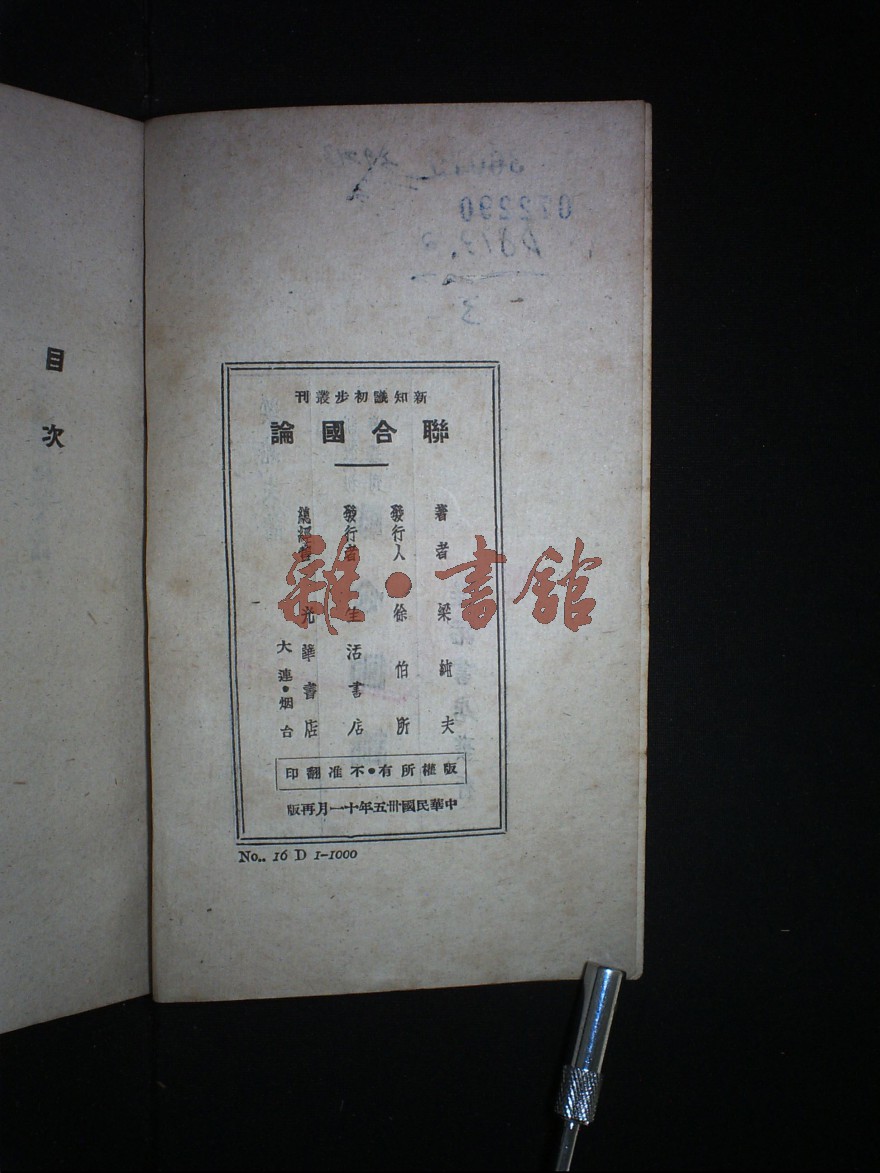 新知識初步叢刊
聯合國論
著者 梁純夫
發行人 徐伯昕
發行者 生活書店
總經售 光華書店
大連·烟台
版權所有·不准翻印
中華民國卅五年十一月再版
No.. 16 D 1-1000
目次
雜·書館
072290